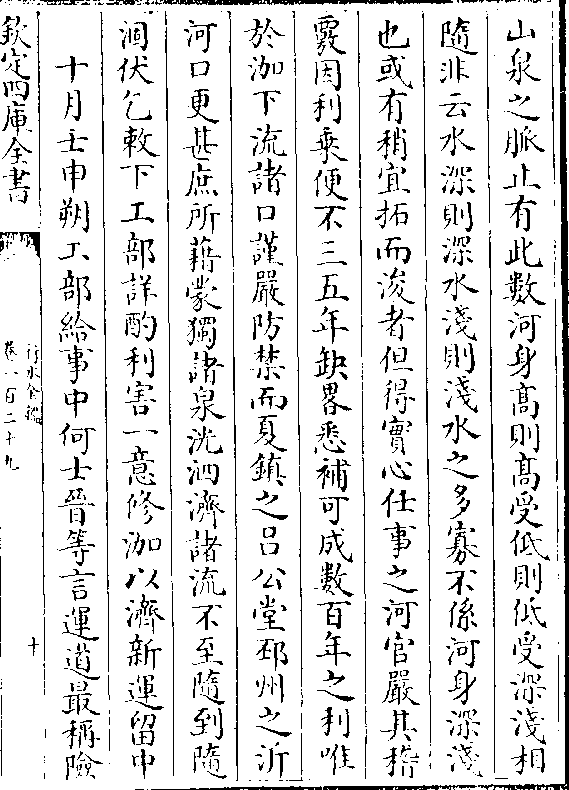 山泉之脈止有此數河身髙則髙受低則低受深淺相
隨非云水深則深水淺則淺水之多寡不係河身深淺
也或有稍宜拓而浚者但得實心任事之河官嚴其稽
覈因利乗便不三五年缺畧悉補可成數百年之利唯
於泇下流諸口謹嚴防禁而夏鎮之吕公堂邳州之沂
河口更甚庶所藉蒙獨諸泉洸泗濟諸流不至隨到隨
涸伏乞敕下工部詳酌利害一意修泇以濟新運留中
十月壬申朔工部給事中何士晉等言運道最稱險
欽定四庫全書
行水金鑑
卷一百二十九
十